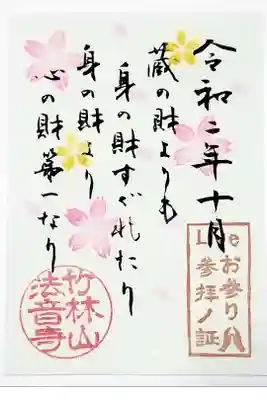 令和二年十月
蔵の財よりも
身の財すぐれたり
身の財より
心の財第一なり
Liveお参り
参拝ノ証
竹林山
法音寺